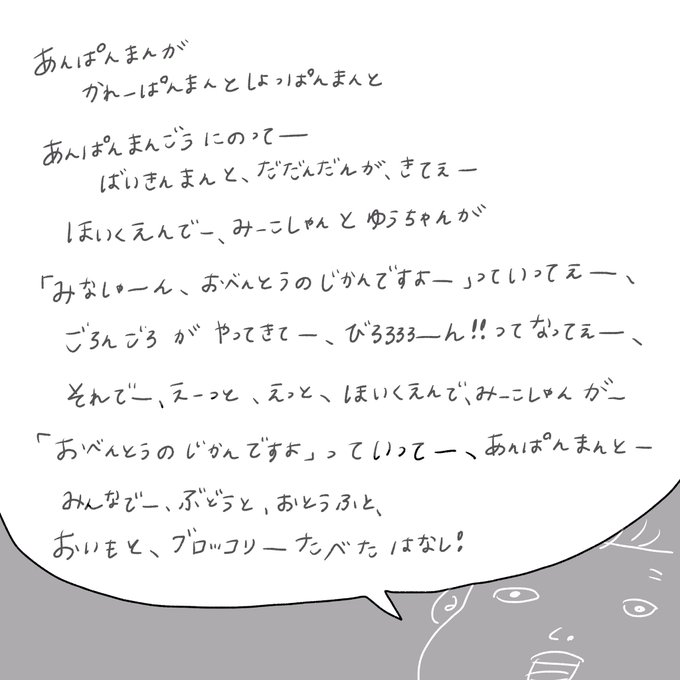 あんぱんまんが
かれーぱんまんとしょっぱんまんと
あんぱんまんごうにのってー
ばいきんまんと、だだんだんが、きてぇー
ほいくえんでー、みーこしゃんとゆうちゃんが
「みなしゅーん、おべんとうのじかんですよー」っていってぇー、
ごろんごろがやってきてー、びろろろろーん!!ってなってぇー、
それでー、えーっと、えっと、ほいくえんで、みーこしゃんがー
「おべんとうのじかんですよ」っていってー、あんぱんまんとー
みんなでー、ぶどうと、おとうふと、
おいもと、ブロッコリーたべたはなし!